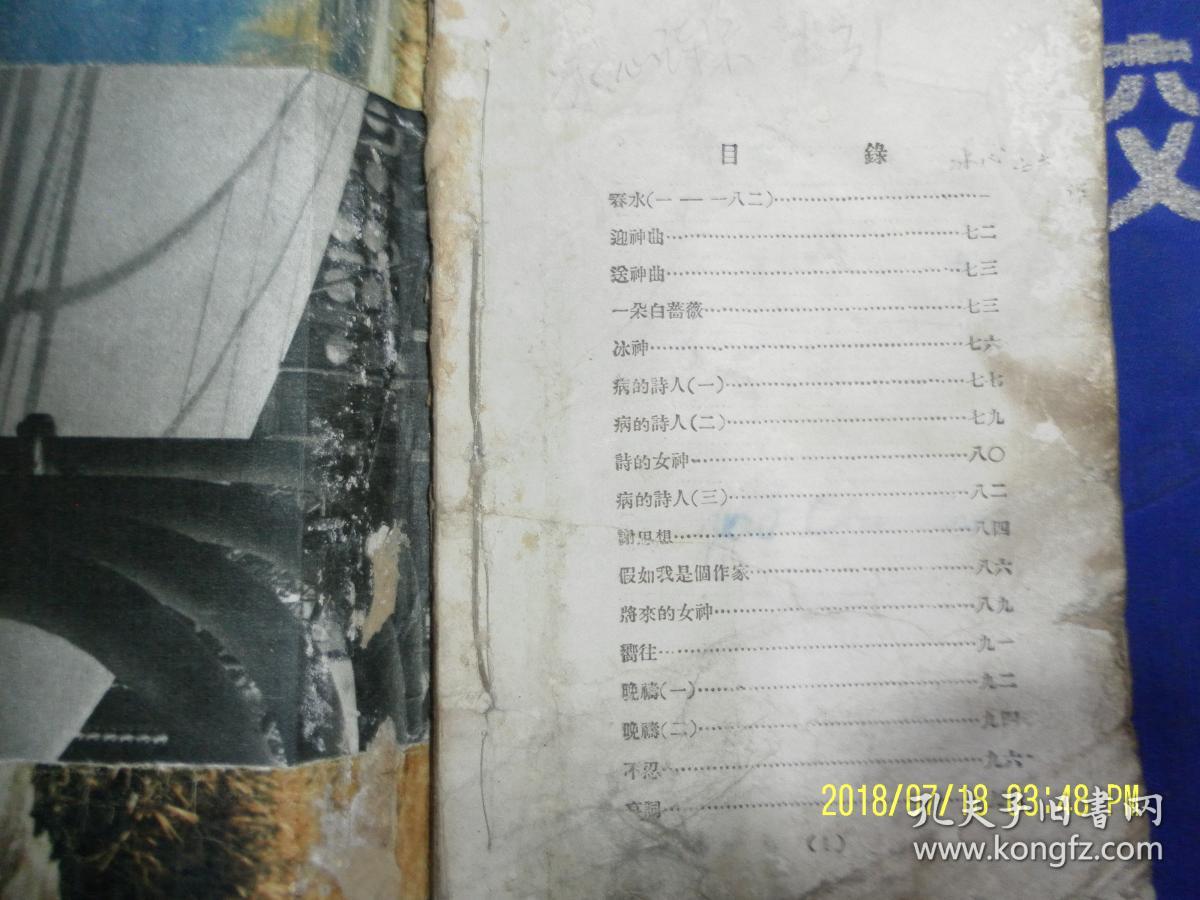 目 錄
春水(一 — 一八二)…………………………一
迎神曲…………………………七二
送神曲…………………………七三
一朵白薔薇…………………………七三
冰神…………………………七六
病的詩人(一)…………………………七七
病的詩人(二)…………………………七九
詩的女神…………………………八〇
病的詩人(三)…………………………八二
謝思想…………………………八四
假如我是個作家…………………………八六
將來的女神…………………………八九
嚮往…………………………九一
晚禱(一)…………………………九二
晚禱(二)…………………………九四
不忍…………………………九六
哀詞…………………………
(1)
交
2018/07/18 03:48 PM
孔夫子旧書网
www.kongfz.com